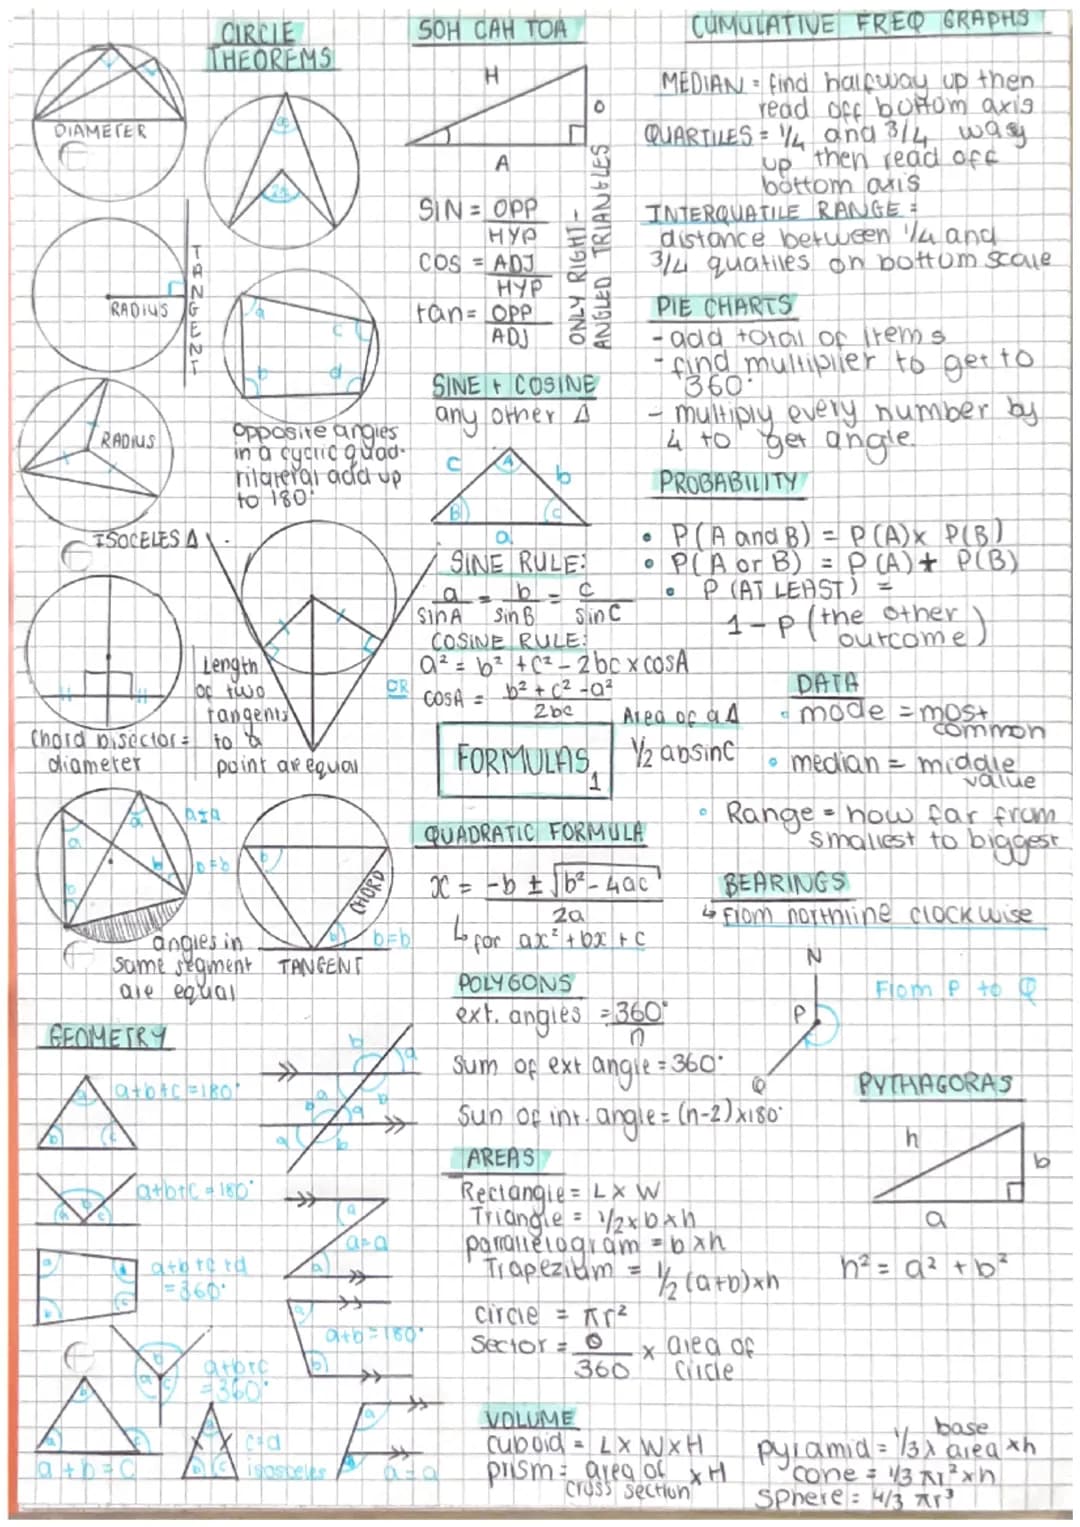 CIRCLE
THEOREMS
DIAMETER
x
2x
RADIUS
TANGENT
RADIUS
a
c
b
d
opposite angles
in a cyclic quad-
rilateral add up
to 180°
ISOCELES Δ
Chord bisector =
diameter
Length
of two
tangents
to a
point are equal
a=a
b=b
a
a
b
b
angles in
same segment
are equal
b
CHORD
b
b=b
TANGENT
GEOMETRY
a+b+c=180°
a
b
c
a+b+c=180°
a
b
c
a+b+c+d
=360°
a
d
b
c
a+b+c
=360°
b
a
c
a+b=c
b
a
c
c=d
isosceles
b
a
a
b
a
a
b
a
a=a
a
a
a+b=180°
b
a
a=a
SOH CAH TOA
H
O
A
SIN = OPP
HYP
COS = ADJ
HYP
tan = OPP
ADJ
ONLY RIGHT-
ANGLED TRIANGLES
SINE + COSINE
any other Δ
c
A
b
B
C
a
SINE RULE:
a = b = c
sinA sinB sinC
COSINE RULE:
a² = b² + c² - 2bc x cosA
OR
cosA = b² + c² - a²
2bc
Area of a Δ
½ absinc
FORMULAS
1
QUADRATIC FORMULA
x = -b ± √b² - 4ac
2a
↳ for ax² + bx + c
POLYGONS
ext. angles = 360°
n
Sum of ext angle = 360°
Sun of int. angle = (n-2)x180°
AREAS
Rectangle = L x W
Triangle = 1/2 x b x h
parallelogram = b x h
Trapezium = ½ (a+b) x h
circle = πr²
Sector = θ x area of
360 circle
VOLUME
cuboid = L x W x H
prism = area of x H
cross section
base
pyramid = 1/3 x area x h
cone = 1/3 πr² x h
sphere = 4/3 πr³
CUMULATIVE FREQ GRAPHS
MEDIAN = find halfway up then
read off bottom axis
QUARTILES = ¼ and 3/4 way
up then read off
bottom axis
INTERQUATILE RANGE =
distance between ¼ and
3/4 quatiles on bottom scale
PIE CHARTS
- add total of items
- find multiplier to get to
360°
- multiply every number by
4 to get angle.
PROBABILITY
• P(A and B) = P(A) x P(B)
• P(A or B) = P(A) + P(B)
• P (AT LEAST) =
1 - P (the other
outcome)
DATA
• mode = most
common
• median = middle
value
• Range = how far from
smallest to biggest
BEARINGS
↳ from northline clockwise
N
From P to Q
P
Q
PYTHAGORAS
h
b
a
h² = a² + b²